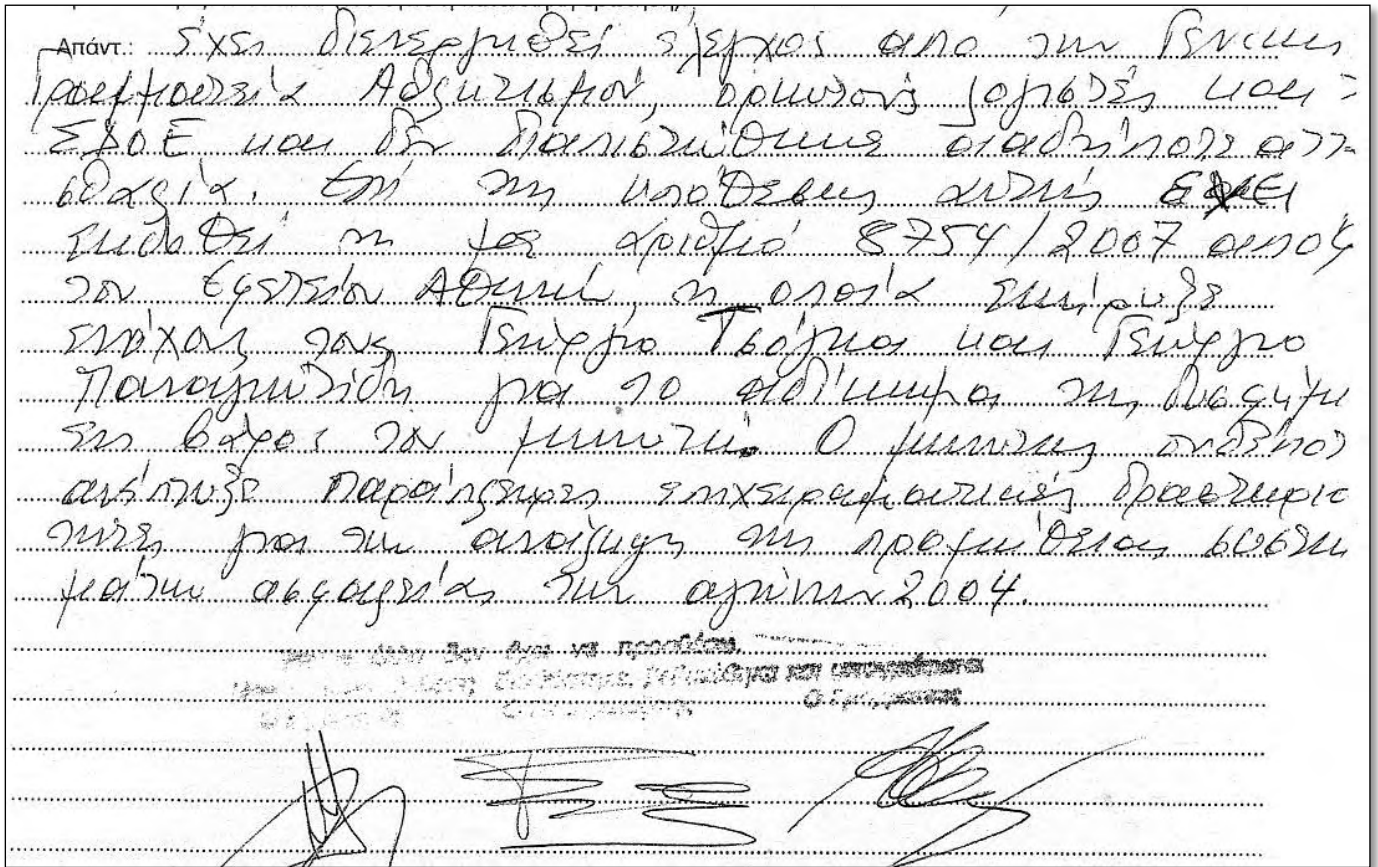 Απάντ.: Έχει διενεργηθεί έλεγχος από την Γενική
Γραμματεία Αθλητισμού, ορκωτούς λογιστές και
ΣΔΟΕ και δεν διαπιστώθηκε οιαδήποτε ατα-
σθαλία. Επί της υπόθεσης αυτής έχει
εκδοθεί η με αριθμό 8754/2007 αποφ
του Εφετείου Αθηνών, η οποία εκήρυξε
ενόχους τους Γεώργιο Τσόγκα και Γεώργιο
Παναγιωτίδη για το αδίκημα της δυσφήμι
σης βάρος του μηνυτή. Ο μηνυτής ουδέποτ
ανέπτυξε παράπλευρες επιχειρηματικές δραστηριο
τητες για την ανάληψη της προμήθειας συστη
μάτων ασφαλείας των αγώνων 2004.
άλλο δεν έχει να προσθέσει
και υπογράφεται